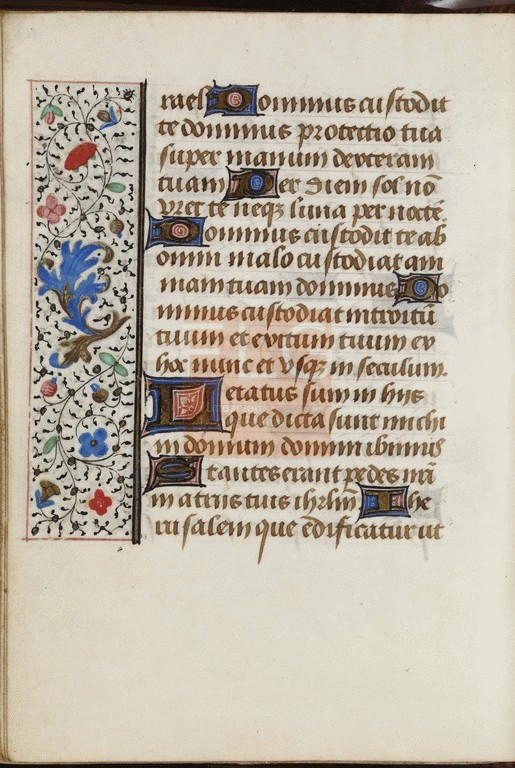 rael Dominus custodit
te dominus protectio tua
super manum dexteram
tuam Per diem sol nō
vret te neqz luna per noctē.
Dominus custodit te ab
omni malo custodiat am
mam tuam dominus Do
minus custodiat introitū
tuum et exitum tuum ex
hoc nunc et vsqz in seculum.
Letatus sum in hijs
que dicta sunt michi
in domum domini ibimus
Stantes erant pedes nr̄i
in atrijs tuis ihrl̄m Ihe
rusalem que edificatur ut